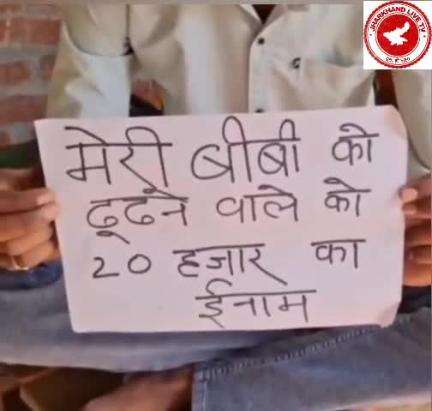 JHARKHAND LIVE TV
मेरी बीबी को
ढूढने वाले को
20 हजार का
ईनाम